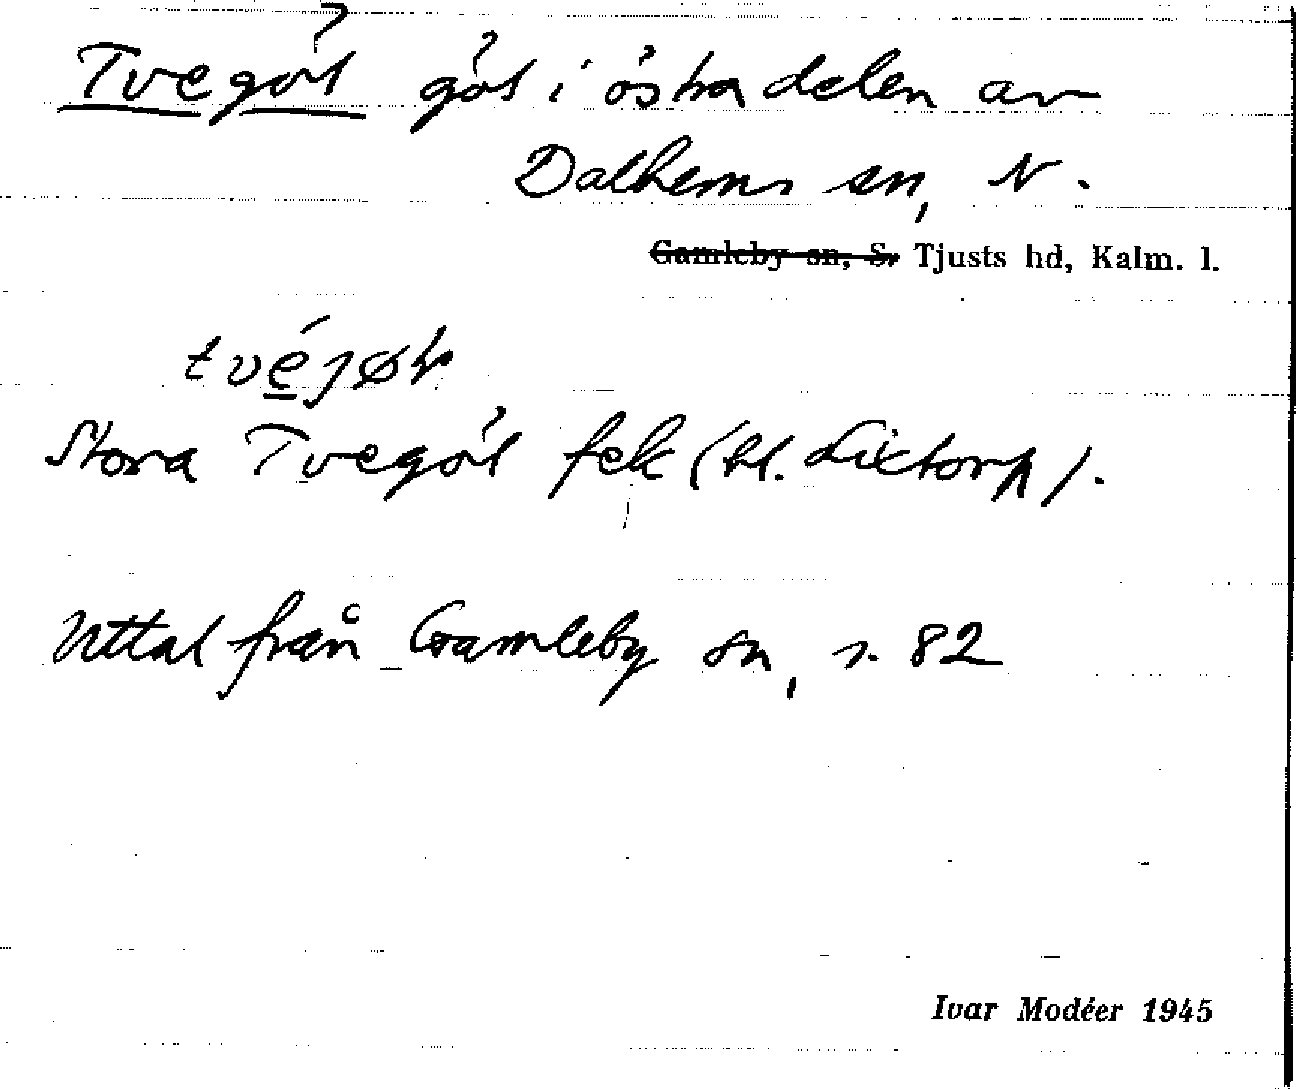 Tvegöl göl i östra delen av
Dalhems sn, N.
Gamleby sn, S. Tjusts hd, Kalm. l.
Stora Tvegöl fek (bl. Lixtorp).
Uttal från Gamleby sn, s. 82
Ivar Modéer 1945